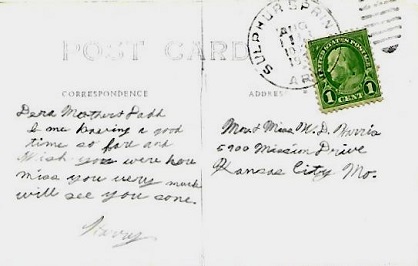 POST CARD
SULPHUR SPRIN
AUG
AR
UNITED STATES POSTAGE
1 CENT 1
CORRESPONDENCE
ADDRESS
Dera Mother & Dabb
I me having a good
time so fare and
Wish you were here
miss you very much
will see you sone.
Harry
Mr and Miss M. D. Norris
5900 Mission Drive
Kansas City Mo.